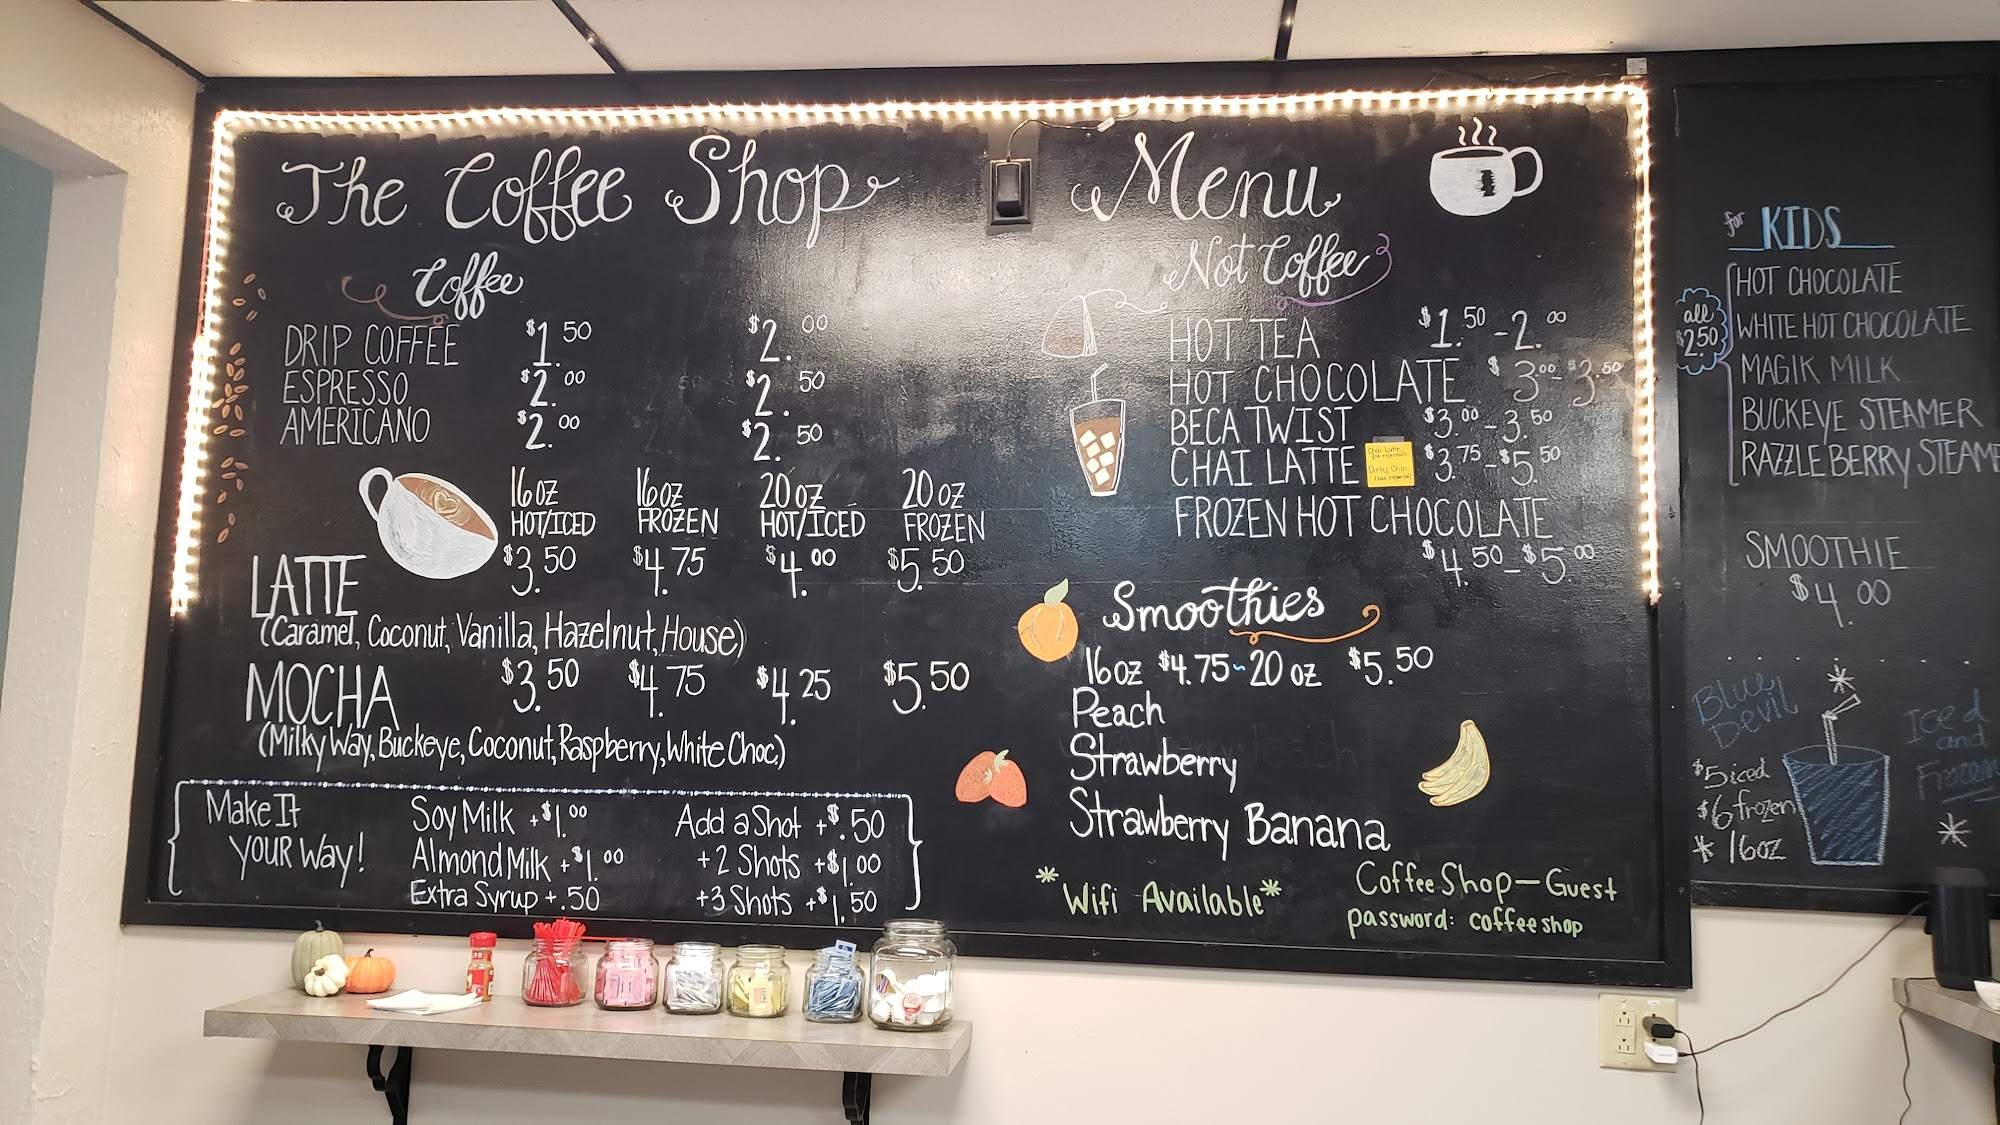 The Coffee Shop Menu
Coffee
DRIP COFFEE $1.50 $2.00
ESPRESSO $2.00 $2.50
AMERICANO $2.00 $2.50
16oz HOT/ICED 16oz FROZEN 20oz HOT/ICED 20oz FROZEN
LATTE $3.50 $4.75 $4.00 $5.50
(Caramel, Coconut, Vanilla, Hazelnut, House)
MOCHA $3.50 $4.75 $4.25 $5.50
(Milky Way, Buckeye, Coconut, Raspberry, White Choc)
Make It
YOUR Way!
Soy Milk +$1.00
Almond Milk +$1.00
Extra Syrup +.50
Add a Shot +$.50
+2 Shots +$1.00
+3 Shots +$1.50
Not Coffee
HOT TEA $1.50-2.00
HOT CHOCOLATE $3.00-$3.50
BECA TWIST $3.00-3.50
CHAI LATTE $3.75-$5.50
Chai Latte
Dirty Chai
FROZEN HOT CHOCOLATE
$4.50-$5.00
Smoothies
16oz $4.75~20oz $5.50
Peach
Strawberry
Strawberry Banana
*Wifi Available*
Coffee Shop—Guest
password: coffeeshop
for KIDS
all
$2.50
HOT CHOCOLATE
WHITE HOT CHOCOLATE
MAGIK MILK
BUCKEYE STEAMER
RAZZLEBERRY STEAME
SMOOTHIE
$4.00
Blue
Devil
$5 iced
$6 frozen
* 16oz
Iced
and
Frozen